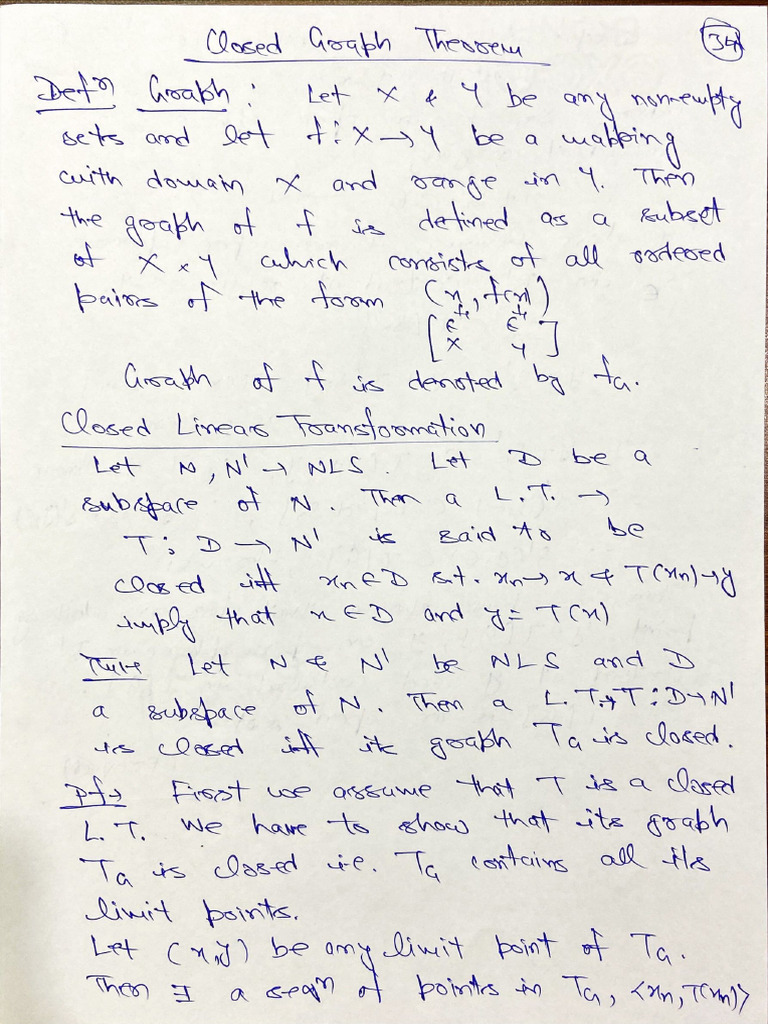 Closed Graph Theorem
34
Defn Graph: Let X & Y be any non-empty
sets and let f: X → Y be a mapping
with domain X and range in Y. Then
the graph of f is defined as a subset
of X × Y which consists of all ordered
pairs of the form (x, f(x))
[ ∈ ∈ ]
X Y
Graph of f is denoted by fG.
Closed Linear Transformation
Let N, N' → NLS. Let D be a
subspace of N. Then a L.T. →
T: D → N' is said to be
closed iff xn ∈ D s.t. xn → x & T(xn) → y
imply that x ∈ D and y = T(x)
Let N & N' be NLS and D
a subspace of N. Then a L.T. T: D → N'
is closed iff its graph TG is closed.
Pf→ First we assume that T is a closed
L.T. We have to show that its graph
TG is closed i.e. TG contains all its
limit points.
Let (x,y) be any limit point of TG.
Then ∃ a seqn of points in TG, <xn, T(xn)>